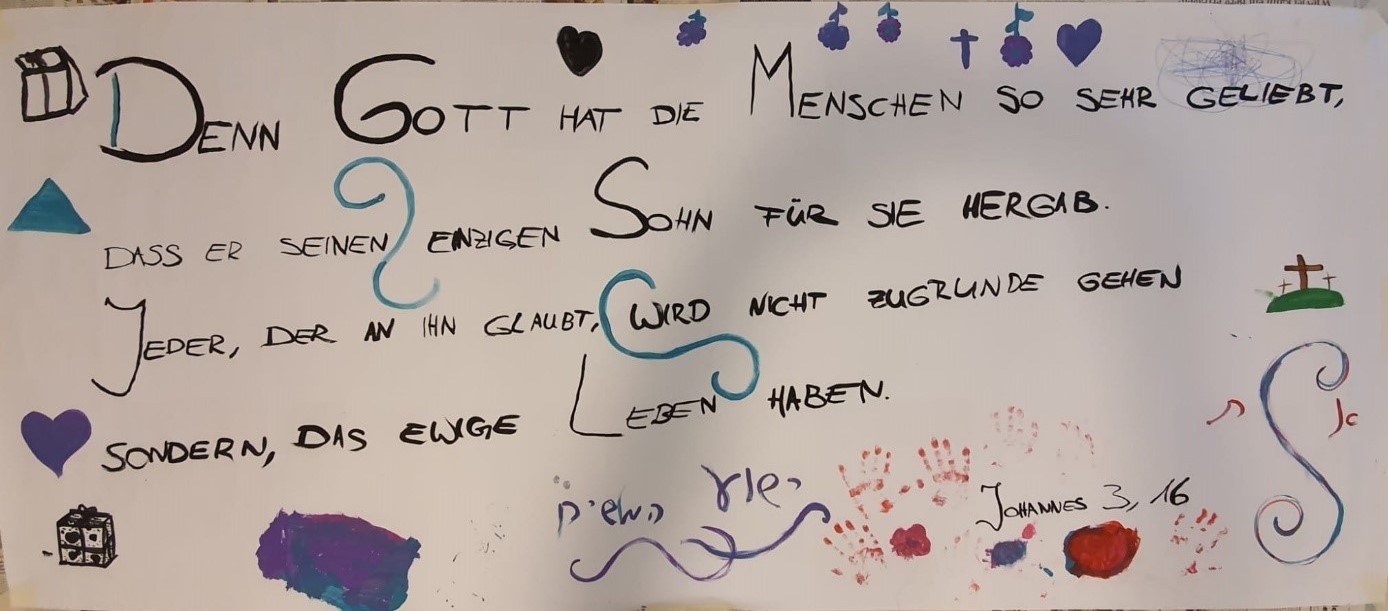 DENN GOTT HAT DIE MENSCHEN SO SEHR GELIEBT,
DASS ER SEINEN EINZIGEN SOHN FÜR SIE HERGAB.
JEDER, DER AN IHN GLAUBT, WIRD NICHT ZUGRUNDE GEHEN
SONDERN, DAS EWIGE LEBEN HABEN.
ישוע המשיח
JOHANNES 3, 16